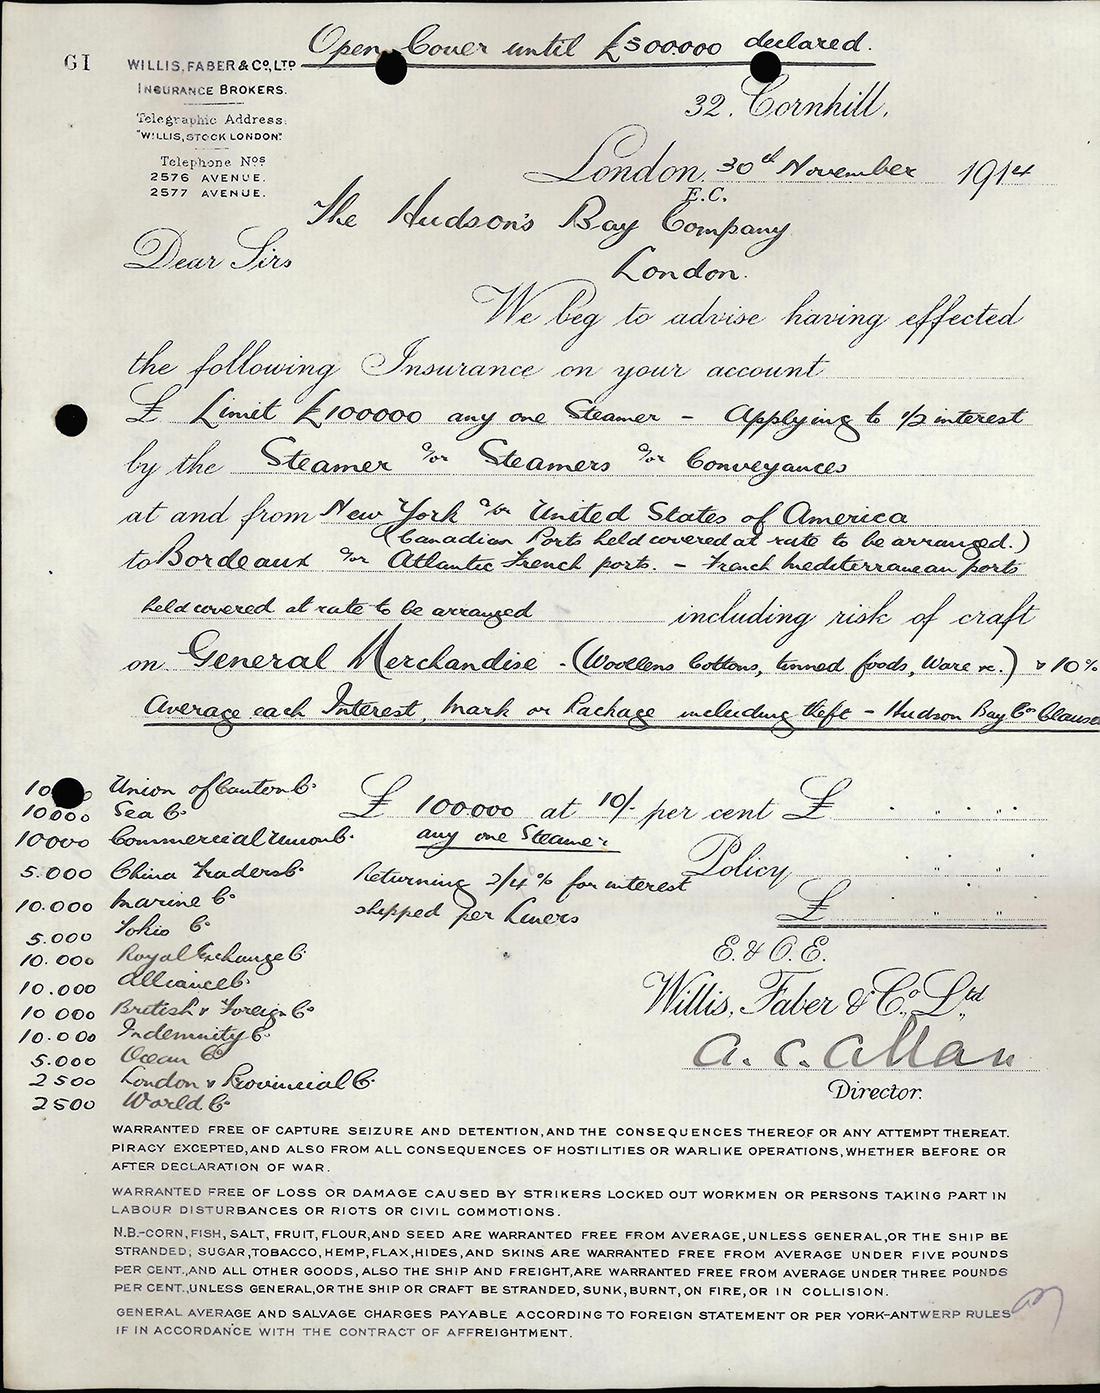 Open Cover until £500.000 declared.
GI
WILLIS, FABER & Co, LTD
INSURANCE BROKERS.
Telegraphic Address:
"WILLIS, STOCK LONDON".
Telephone Nos
2576 AVENUE.
2577 AVENUE.
32. Cornhill,
London, 30th November 1914
E.C.
The Hudson's Bay Company
London.
Dear Sirs
We beg to advise having effected
the following Insurance on your account
£ Limit £100000 any one Steamer - Applying to 1/2 interest
by the Steamer a/or Steamers a/or Conveyances
at and from New York a/or United States of America
(Canadian Ports held covered at rate to be arranged.)
to Bordeaux a/or Atlantic French ports. - French Mediterranean ports
held covered at rate to be arranged including risk of craft
on General Merchandise - (Woollens Cottons, tinned foods, Ware &c.) & 10%
Average each Interest, Mark or Package including theft - Hudson Bay Co Clause
Union of Canton Co.
10000 Sea Co
10000 Commercial Union Co.
5.000 China Traders Co
10.000 Marine Co
5.000 Tokio Co
10.000 Royal Exchange Co
10.000 Alliance Co.
10 000 British & Foreign Co
10.000 Indemnity Co
5.000 Ocean Co
2500 London & Provincial Co.
2500 World Co
£ 100.000 at 10/- per cent £
any one Steamer
Returning 2/4% for interest
shipped per Liners
Policy
£
E. & O. E.
Willis, Faber & Co., Ltd.,
A. C. Allan
Director.
WARRANTED FREE OF CAPTURE SEIZURE AND DETENTION, AND THE CONSEQUENCES THEREOF OR ANY ATTEMPT THEREAT.
PIRACY EXCEPTED, AND ALSO FROM ALL CONSEQUENCES OF HOSTILITIES OR WARLIKE OPERATIONS, WHETHER BEFORE OR
AFTER DECLARATION OF WAR.
WARRANTED FREE OF LOSS OR DAMAGE CAUSED BY STRIKERS LOCKED OUT WORKMEN OR PERSONS TAKING PART IN
LABOUR DISTURBANCES OR RIOTS OR CIVIL COMMOTIONS.
N.B.-CORN, FISH, SALT, FRUIT, FLOUR, AND SEED ARE WARRANTED FREE FROM AVERAGE, UNLESS GENERAL, OR THE SHIP BE
STRANDED; SUGAR, TOBACCO, HEMP, FLAX, HIDES, AND SKINS ARE WARRANTED FREE FROM AVERAGE UNDER FIVE POUNDS
PER CENT., AND ALL OTHER GOODS, ALSO THE SHIP AND FREIGHT, ARE WARRANTED FREE FROM AVERAGE UNDER THREE POUNDS
PER CENT., UNLESS GENERAL, OR THE SHIP OR CRAFT BE STRANDED, SUNK, BURNT, ON FIRE, OR IN COLLISION.
GENERAL AVERAGE AND SALVAGE CHARGES PAYABLE ACCORDING TO FOREIGN STATEMENT OR PER YORK-ANTWERP RULES
IF IN ACCORDANCE WITH THE CONTRACT OF AFFREIGHTMENT.